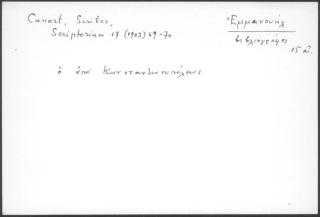 Canart, Scribes,
Scriptorium 17 (1963) 69-70
Ἐμμανουήλ
βιβλιογράφος
15 αἰ.
ὁ ἀπὸ Κωνσταντινουπόλεως